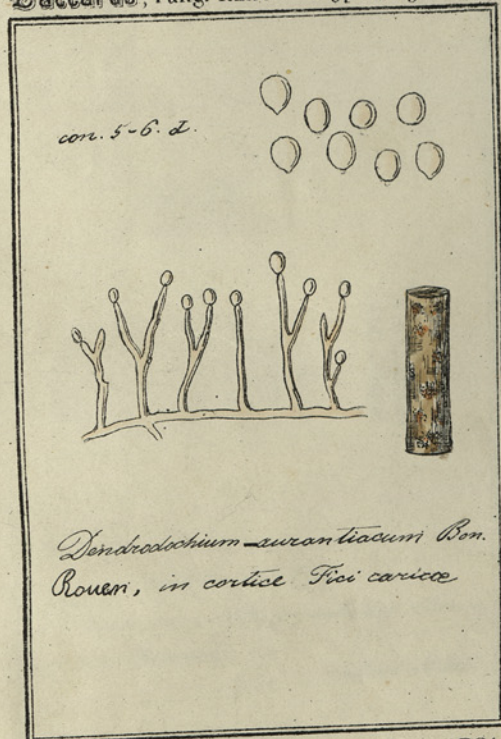 con. 5-6. d.
Dendrodochium aurantiacum Bon.
Rouen, in cortice Fici caricæ